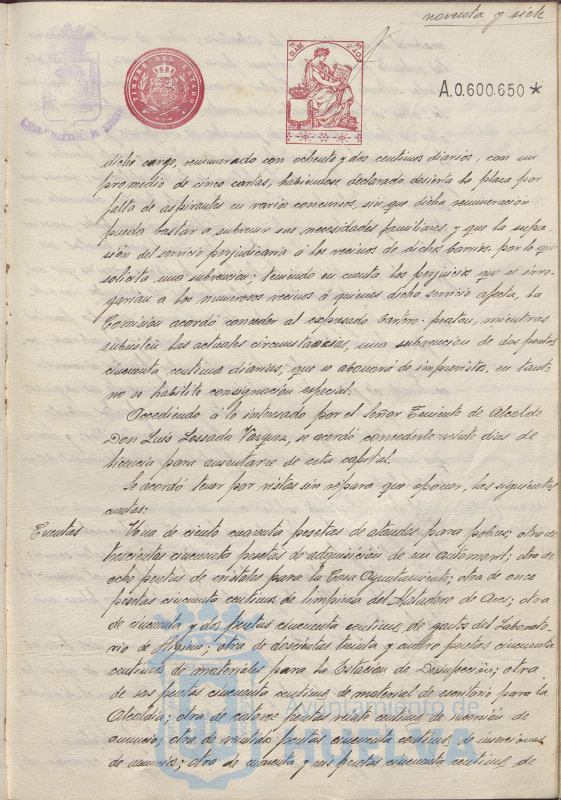 noventa y siete
TIMBRE DEL ESTADO
A.0.600.650 *
dicho cargo, remunerado con ochenta y dos centimos diarios, con un
promedio de cinco cartas, habiendose declarado desierta la plaza por
falta de aspirantes en varios concursos, sin que dicha remuneración
pueda bastar a subvenir sus necesidades familiares, y que la supre-
sion del servicio perjudicaria á los vecinos de dichos barrios, por lo que
solicita una subvencion; teniendo en cuenta los perjuicios que se irro-
garian a los numerosos vecinos á quienes dicho servicio afecta, la
Comisión acordó conceder al expresado cartero-peaton, mientras
subsisten las actuales circunstancias, una subvencion de dos pesetas
cincuenta centimos diarias, que se abonará de imprevistos, en tanto
no se habilite consignación especial.
Accediendo á lo interesado por el Señor Teniente de Alcalde
Don Luis Lossada Vazquez, se acordó concederle veinte dias de
licencia para ausentarse de esta capital.
Se acordó tener por vistas sin reparo que oponer, las siguientes
cuentas:
Cuentas
Una de ciento cuarenta pesetas de ataudes para pobres; otra de
trescientas cincuenta pesetas de adquisición de un automovil; otra de
ocho pesetas de cristales para la Casa Ayuntamiento; otra de once
pesetas cincuenta centimos de limpieza del Matadero de Aves; otra
de cincuenta y dos pesetas cincuenta centimos, de gastos del Laborato-
rio de Higiene; otra de doscientas treinta y cuatro pesetas cincuenta
centimos de materiales para la Estación de Desinfección; otra
de seis pesetas cincuenta centimos de material de escritorio para la
Alcaldia; otra de catorce pesetas veinte centimos de inserción de
anuncio; otra de pesetas cincuenta centimos de inserciones
de anuncios; otra de cuarenta y seis pesetas cincuenta centimos de
Ayuntamiento de
HUELVA